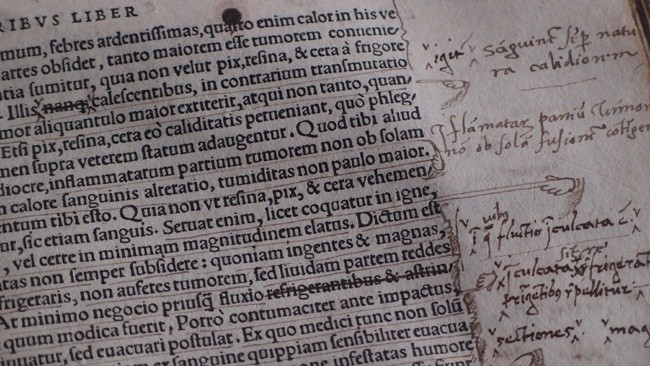 RIBVS LIBER
mum, febres ardentissimas, quanto enim calor in his ve
artes obsidet, tanto maiorem esse tumorem conuenie
tia sumitur, quia non velut pix, resina, & cera à frigore
Illis nanq; calescentibus, in contrarium transmutatio
mor aliquantulo maior extiterit, atqui non tanto, quan/
Etsi pix, resina, cera eò caliditatis perueniant, quò phleg/
men supra veterem statum adaugentur. Quod tibi aliud
diocre, inflammatarum partium tumorem non ob solam
calore sanguinis alteratio, tumiditas non paulo maior.
entum tibi esto. Quia non vt resina, pix, & cera vehemen/
tur, sic etiam sanguis. Seruat enim, licet coquatur in igne,
, vel certe in minimam magnitudinem elatus. Dictum est
tas non semper subsidere: quoniam ingentes & magnas,
frigeraris, non auferes tumorem, sed liuidam partem reddes
At minimo negocio priusq̃ fluxio refrigerantibus & astrin/
quum modica fuerit, Porrò contumaciter ante impactus,
iuuatur, sed euacuari postulat. Ex quo medici tunc non solũ
ex sanguine quippiam sensibiliter euacua
ne infestatas humore
igitr
Sãguine sẽp natu
ra calidiorem
flãmatar partiũ tumor
nõ ob solã fusionẽ
fluxio
sectiones
mag